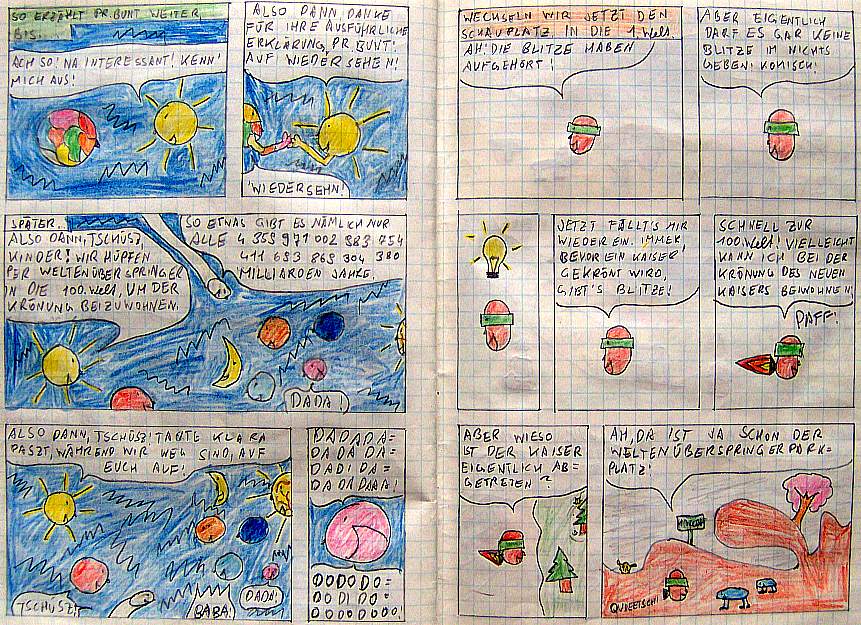 SO ERZÄHLT PR. BUNT WEITER,
BIS...
ACH SO! NA INTERESSANT! KENN'
MICH AUS!
ALSO DANN, DANKE
FÜR IHRE AUSFÜHRLICHE
ERKLÄRUNG, PR. BUNT!
AUF WIEDERSEHEN!
'WIEDERSEHN!
SPÄTER...
ALSO DANN, TSCHÜSZ,
KINDER! WIR HÜPFEN
PER WELTENÜBERSPRINGER
IN DIE 100. Welt, UM DER
KRÖNUNG BEIZUWOHNEN.
SO ETWAS GIBT ES NÄMLICH NUR
ALLE 4 359 971 002 383 754
411 683 869 304 380
MILLIARDEN JAHRE.
DADA!
ALSO DANN, TSCHÜSZ! TANTE KLARA
PASZT, WÄHREND WIR WEG SIND, AUF
EUCH AUF!
TSCHÜSZ!
BABA!
DADA!
DADADA=
DADA DA=
DADI DA=
DA DADAAA!
DODODO=
DO DO DO=
DO DI DO=
DO DODODO!
WECHSELN WIR JETZT DEN
SCHAUPLATZ IN DIE 1. Welt.
AH! DIE BLITZE HABEN
AUFGEHÖRT!
ABER EIGENTLICH
DARF ES GAR KEINE
BLITZE IM NICHTS
GEBEN! KOMISCH!
JETZT FÄLLT'S MIR
WIEDER EIN. IMMER,
BEVOR EIN KAISER
GEKRÖNT WIRD,
GIBT'S BLITZE!
SCHNELL ZUR
100. Welt! VIELLEICHT
KANN ICH BEI DER
KRÖNUNG DES NEUEN
KAISERS BEIWOHNEN!
PAFF!
ABER WIESO
IST DER KAISER
EIGENTLICH AB=
GETRETEN?
AH, DA IST JA SCHON DER
WELTENÜBERSPRINGERPARK=
PLATZ!
QUIEETSCH!